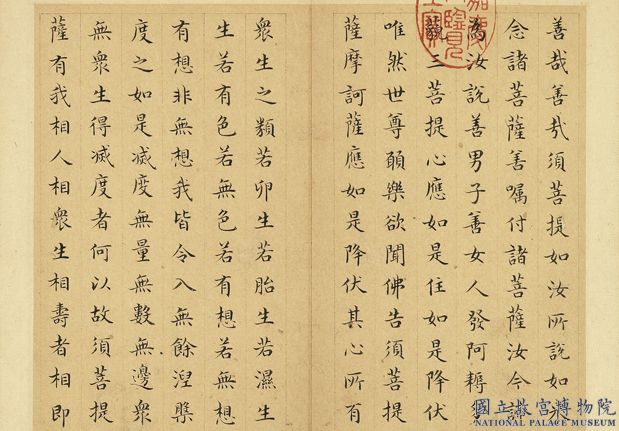 善哉善哉須菩提如汝所說如來
念諸菩薩善囑付諸菩薩汝今諦
為汝說善男子善女人發阿耨多
藐三菩提心應如是住如是降伏
唯然世尊願樂欲聞佛告須菩提
薩摩訶薩應如是降伏其心所有
衆生之類若卵生若胎生若濕生
生若有色若無色若有想若無想
有想非無想我皆令入無餘涅槃
度之如是滅度無量無數無邊衆
無衆生得滅度者何以故須菩提
薩有我相人相衆生相壽者相即
國立故宮博物院
NATIONAL PALACE MUSEUM